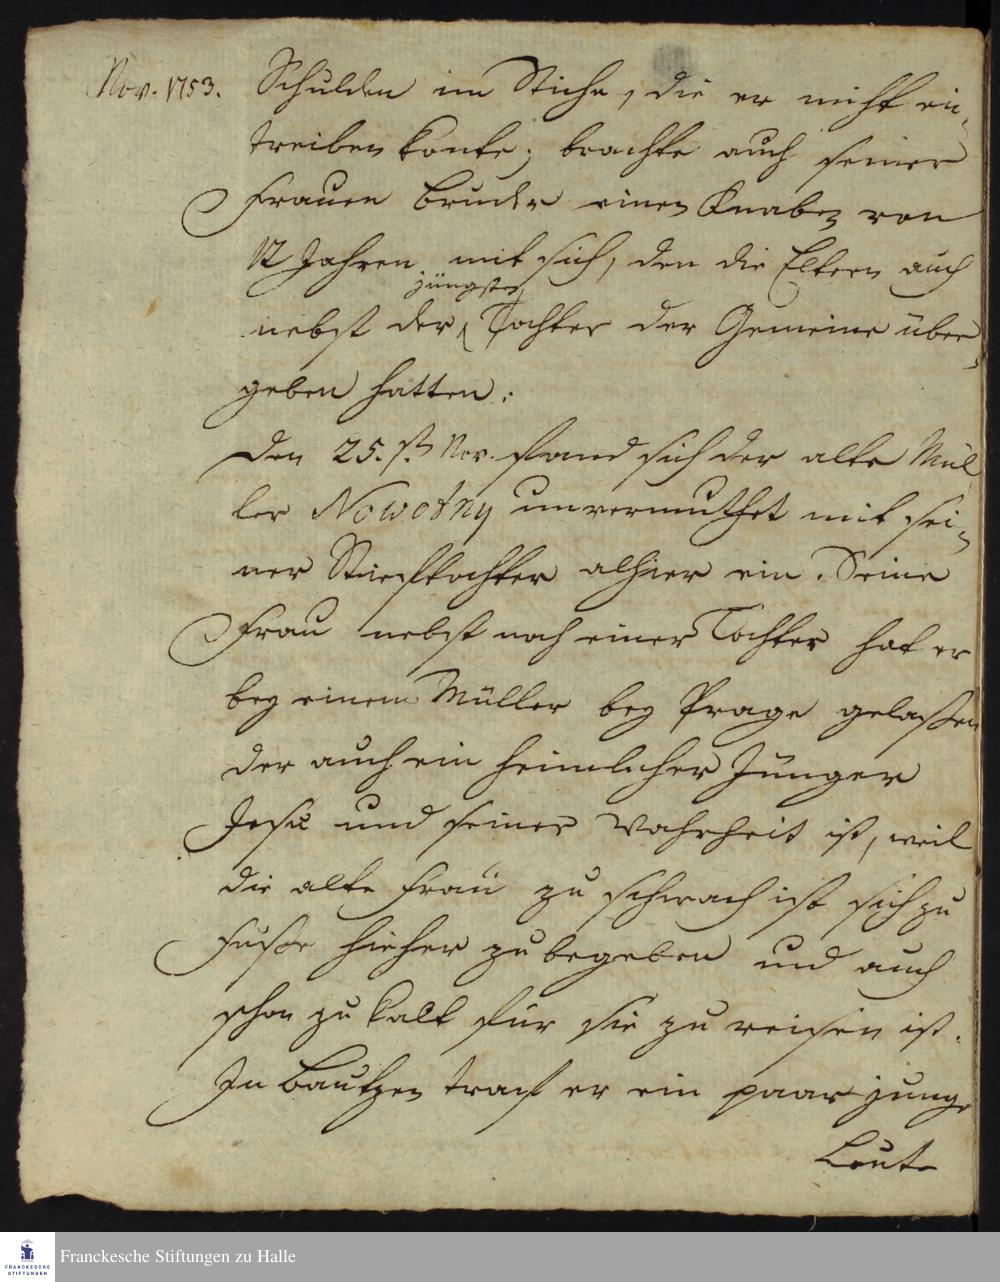 Nov. 1753.
Schulden im Stiche, die er nicht ein-
treiben konte; brachte auch seiner
Frauen Bruder einen Knaben von
12 Jahren mit sich, den die Eltern auch
jüngsten
nebst der Tochter der Gemeine über-
geben hatten.
Den 25.st Nov. fand sich der alte Mül-
ler Nowotny unvermuthet mit sei-
ner Stieftochter alhier ein. Seine
Frau nebst noch einer Tochter hat er
bey einem Müller bey Prage gelaßen
der auch ein heimlicher Jünger
Jesu und seiner Wahrheit ist, weil
die alte Frau zu schwach ist sich zu
Fuße hieher zu begeben und auch
schon zu kalt für sie zu reisen ist.
In Bautzen traf er ein paar junge
Leute
FRANCKESCHE
STIFTUNGEN
Franckesche Stiftungen zu Halle